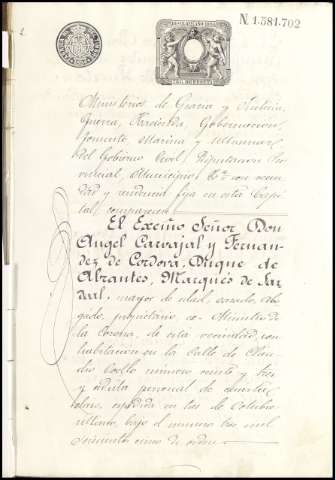 N. 1.581.702
Ministerios de Gracia y Justicia,
Guerra, Hacienda, Gobernación,
Fomento, Marina y Ultramar,
del Gobierno Civil, Diputacion Pro-
vincial, Municipio, &ª con vecin-
dad y residencia fija en esta Capi-
tal, comparecen
El Excmo Señor Don
Angel Carvajal y Fernan-
dez de Cordova, Duque de
Abrantes, Marqués de Sar-
daal, mayor de edad, casado, Abo-
gado, propietario, ex-Ministro de
la Corona, de esta vecindad, con
habitacion en la Calle de Clau-
dio Coello número veinte y tres
y cédula personal de cuarta
clase, expedida en tres de Octubre
último, bajo el número tres mil
seiscientos cinco de orden